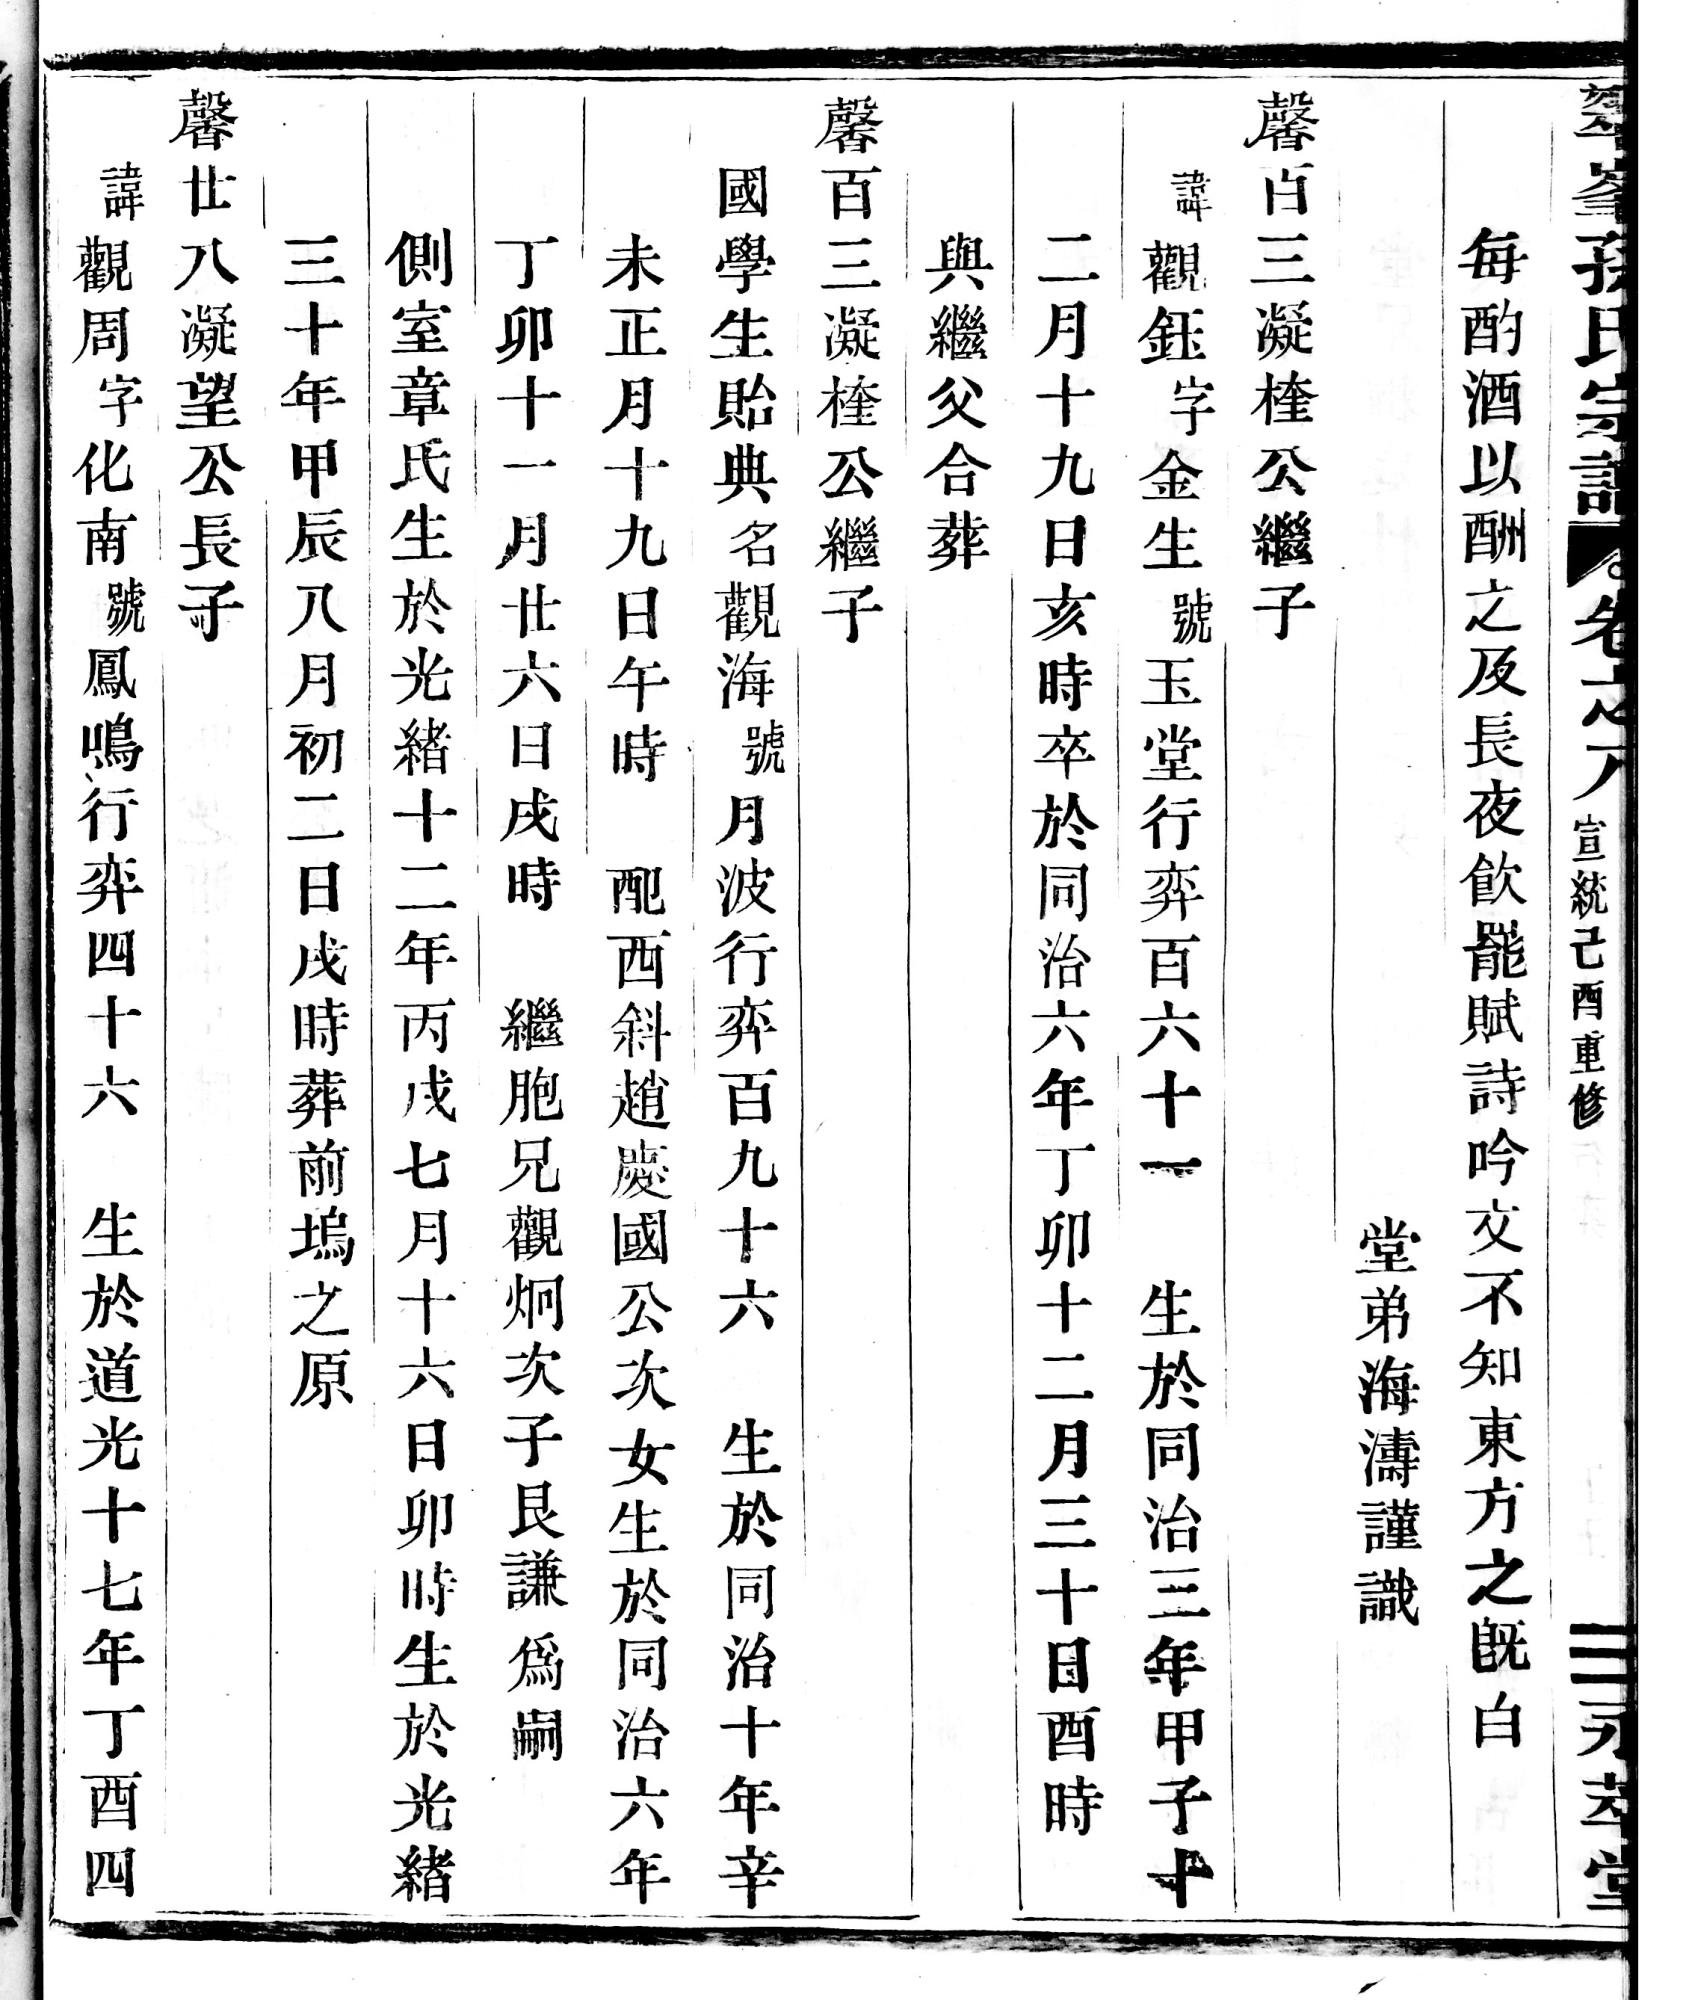 翠峯孫氏宗譜 卷之八 宣統己酉重修 永萃堂
每酌酒以酬之及長夜飲罷賦詩吟文不知東方之既白
堂弟海濤謹識
馨百三凝桂公繼子
諱觀鈺字金生號玉堂行弈百六十一 生於同治三年甲子十
二月十九日亥時卒於同治六年丁卯十二月三十日酉時
與繼父合葬
馨百三凝桂公繼子
國學生貽典名觀海號月波行弈百九十六 生於同治十年辛
未正月十九日午時 配西斜趙慶國公次女生於同治六年
丁卯十一月廿六日戌時 繼胞兄觀炯次子艮謙爲嗣
側室章氏生於光緒十二年丙戌七月十六日卯時生於光緒
三十年甲辰八月初二日戌時葬前塢之原
馨廿八凝望公長子
諱觀周字化南號鳳鳴行弈四十六 生於道光十七年丁酉四